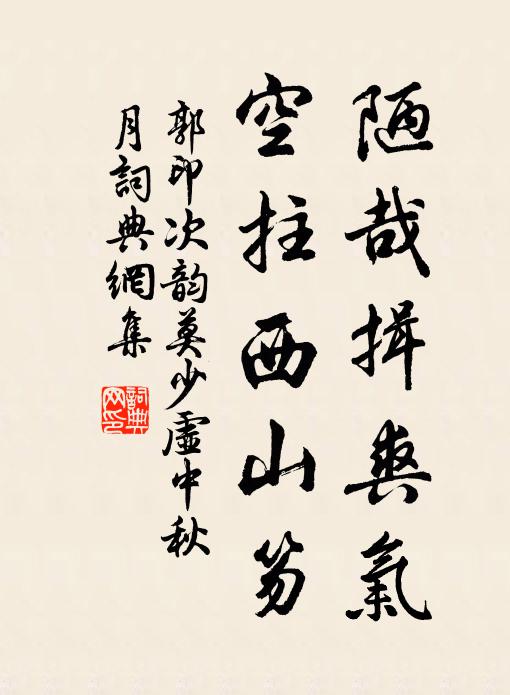 陋哉揖爽氣
空拄西山笏
郭印次韵莫少虛中秋
月詞典網集
詞典
网印